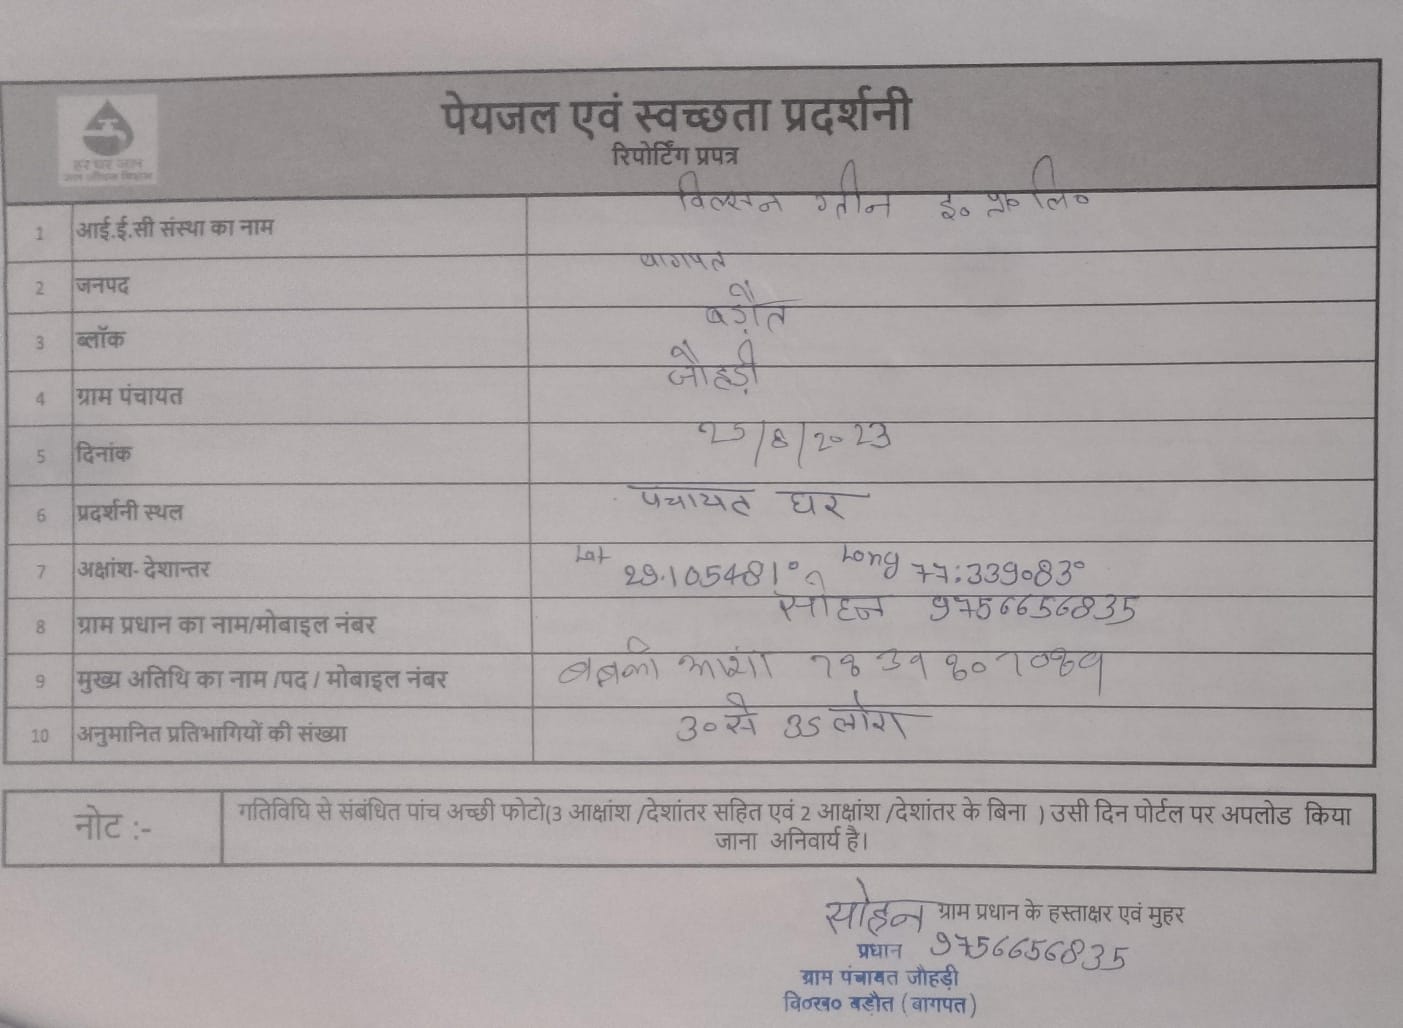 पेयजल एवं स्वच्छता प्रदर्शनी
हर घर जल
जल जीवन मिशन
रिपोर्टिंग प्रपत्र
1 आई.ई.सी संस्था का नाम विल्सन ग्रीन इ० प्रा० लि०
2 जनपद बागपत
3 ब्लॉक बड़ौत
4 ग्राम पंचायत जौहड़ी
5 दिनांक 25/8/2023
6 प्रदर्शनी स्थल पंचायत घर
7 अक्षांश- देशान्तर Lat 29.105481° Long 77:339083°
8 ग्राम प्रधान का नाम/मोबाइल नंबर सोहन 9756656835
9 मुख्य अतिथि का नाम /पद / मोबाइल नंबर
10 अनुमानित प्रतिभागियों की संख्या 30 से 35 लोग
नोट :- गतिविधि से संबंधित पांच अच्छी फोटो(3 आक्षांश /देशांतर सहित एवं 2 आक्षांश /देशांतर के बिना ) उसी दिन पोर्टल पर अपलोड किया
जाना अनिवार्य है।
सोहन ग्राम प्रधान के हस्ताक्षर एवं मुहर
प्रधान 9756656835
ग्राम पंचायत जौहड़ी
वि०ख० बड़ौत (बागपत)